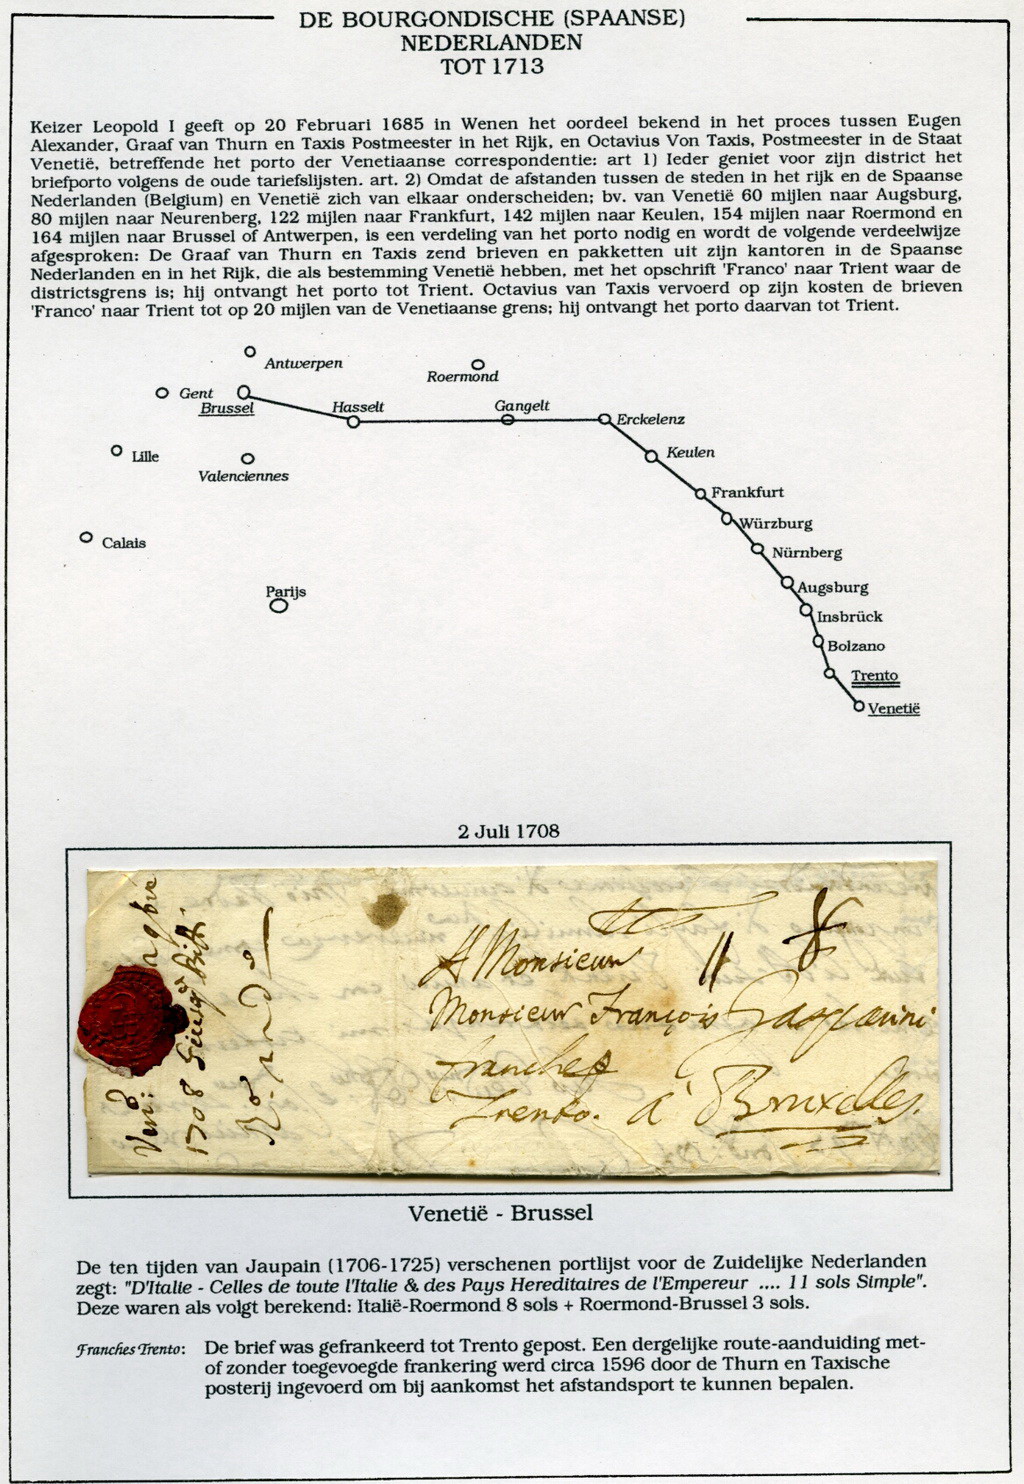 DE BOURGONDISCHE (SPAANSE)
NEDERLANDEN
TOT 1713
Keizer Leopold I geeft op 20 Februari 1685 in Wenen het oordeel bekend in het proces tussen Eugen
Alexander, Graaf van Thurn en Taxis Postmeester in het Rijk, en Octavius Von Taxis, Postmeester in de Staat
Venetië, betreffende het porto der Venetiaanse correspondentie: art 1) Ieder geniet voor zijn district het
briefporto volgens de oude tariefslijsten. art. 2) Omdat de afstanden tussen de steden in het rijk en de Spaanse
Nederlanden (Belgium) en Venetië zich van elkaar onderscheiden; bv. van Venetië 60 mijlen naar Augsburg,
80 mijlen naar Neurenberg, 122 mijlen naar Frankfurt, 142 mijlen naar Keulen, 154 mijlen naar Roermond en
164 mijlen naar Brussel of Antwerpen, is een verdeling van het porto nodig en wordt de volgende verdeelwijze
afgesproken: De Graaf van Thurn en Taxis zend brieven en pakketten uit zijn kantoren in de Spaanse
Nederlanden en in het Rijk, die als bestemming Venetië hebben, met het opschrift 'Franco' naar Trient waar de
districtsgrens is; hij ontvangt het porto tot Trient. Octavius van Taxis vervoerd op zijn kosten de brieven
'Franco' naar Trient tot op 20 mijlen van de Venetiaanse grens; hij ontvangt het porto daarvan tot Trient.
Antwerpen
Roermond
Gent
Brussel
Hasselt
Gangelt
Erckelenz
Lille
Valenciennes
Keulen
Frankfurt
Würzburg
Calais
Nürnberg
Parijs
Augsburg
Insbrück
Bolzano
Trento
Venetië
2 Juli 1708
A Monsieur
11
Monsieur François
franches
Trento. à Bruxelles.
1708
Venetië - Brussel
De ten tijden van Jaupain (1706-1725) verschenen portlijst voor de Zuidelijke Nederlanden
zegt: "D'Italie - Celles de toute l'Italie & des Pays Hereditaires de l'Empereur .... 11 sols Simple".
Deze waren als volgt berekend: Italië-Roermond 8 sols + Roermond-Brussel 3 sols.
Franches Trento: De brief was gefrankeerd tot Trento gepost. Een dergelijke route-aanduiding met-
of zonder toegevoegde frankering werd circa 1596 door de Thurn en Taxische
posterij ingevoerd om bij aankomst het afstandsport te kunnen bepalen.